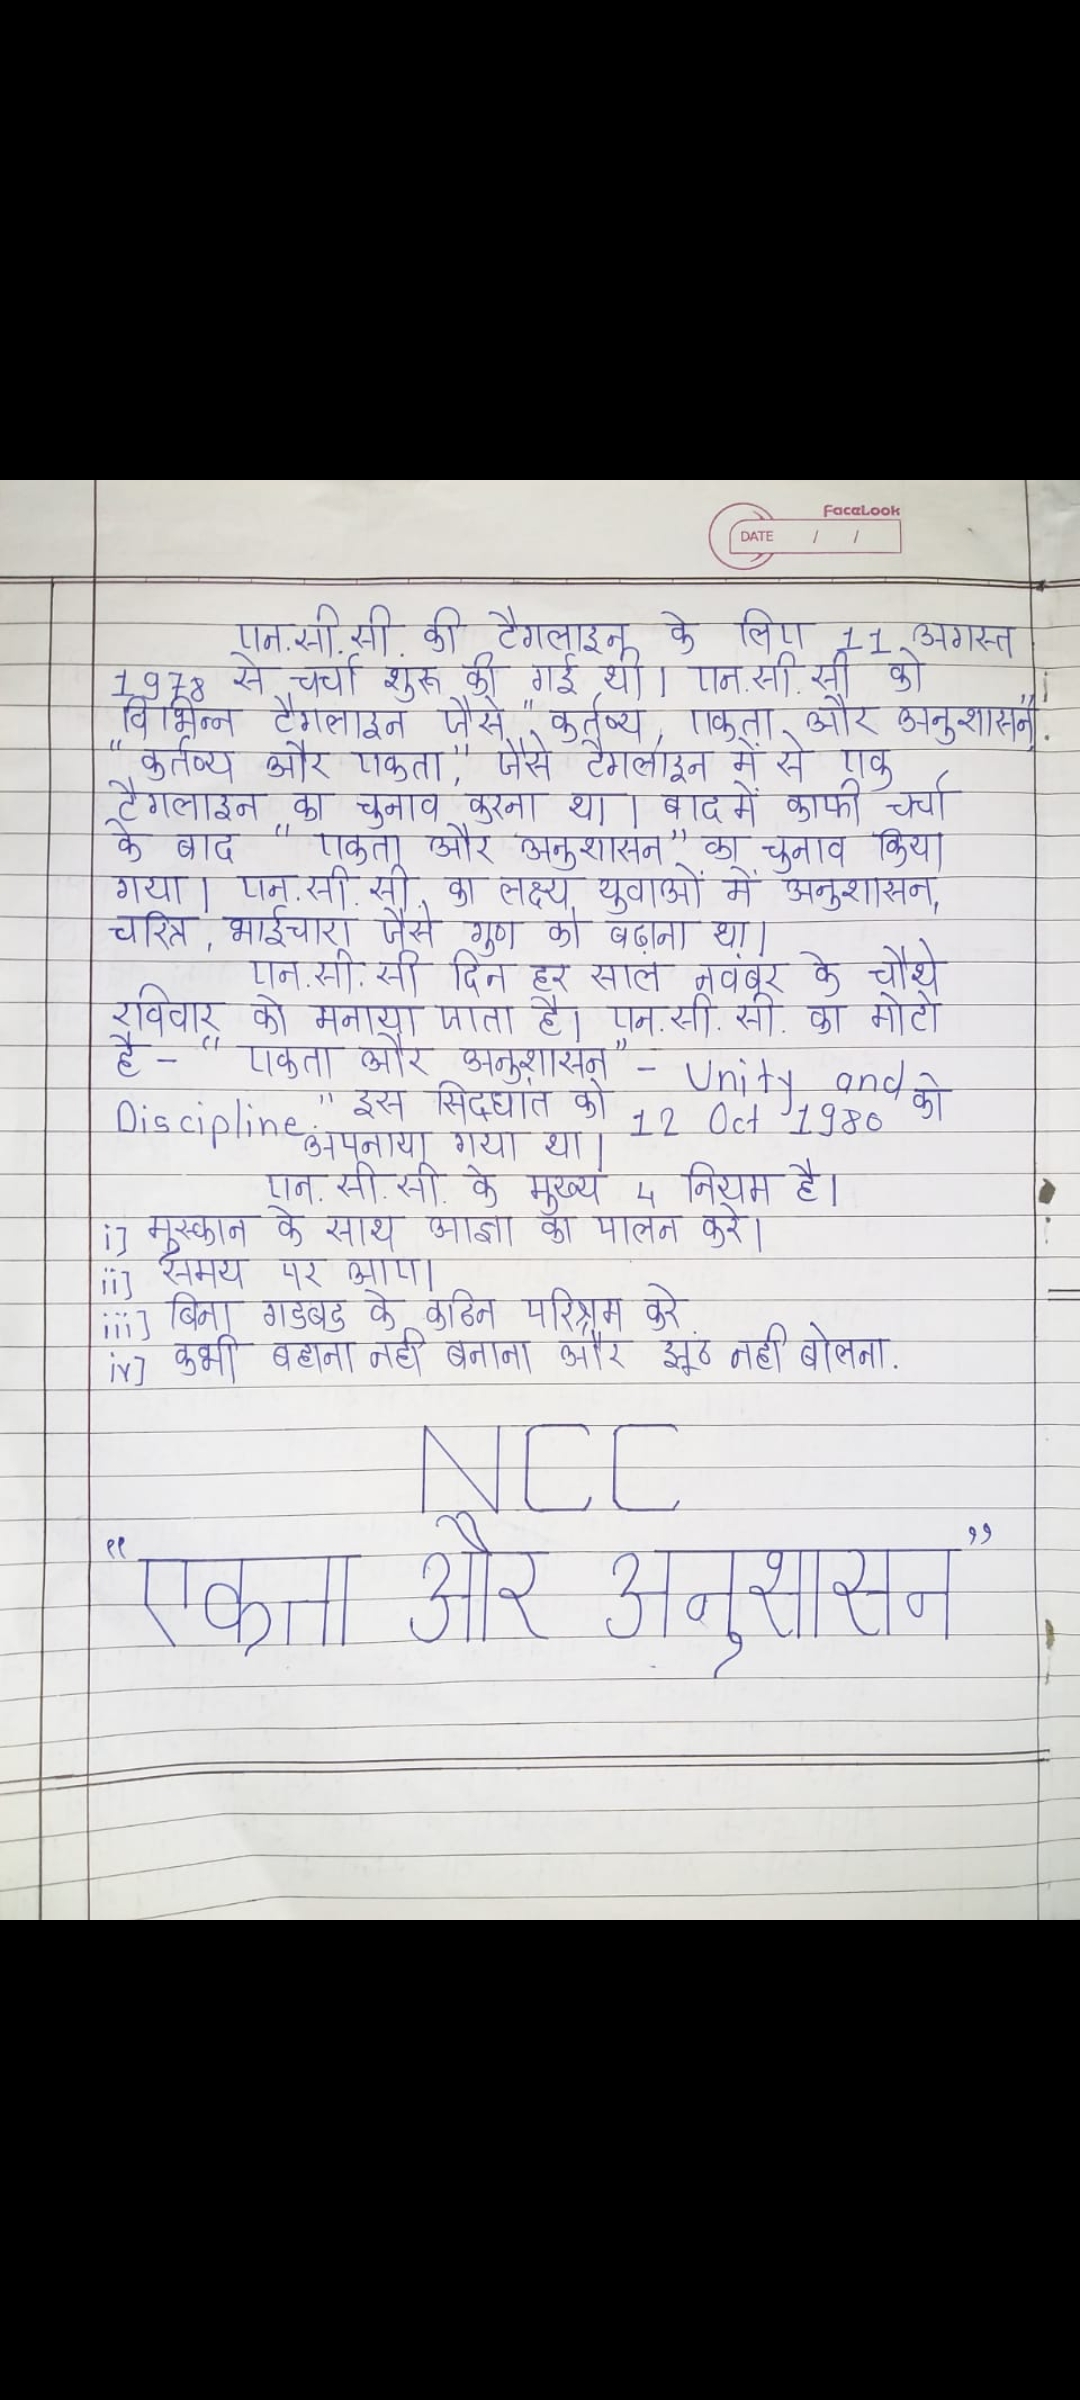 FacaLook
DATE / /
एन.सी.सी. की टैगलाइन के लिए 11 अगस्त
1978 से चर्चा शुरू की गई थी। एन.सी.सी को
विभिन्न टैगलाइन जैसे "कर्तव्य, एकता और अनुशासन",
"कर्तव्य और एकता", जैसे टैगलाइन में से एक
टैगलाइन का चुनाव करना था। बाद में काफी चर्चा
के बाद "एकता और अनुशासन" का चुनाव किया
गया। एन.सी.सी. का लक्ष्य युवाओं में अनुशासन,
चरित्र, भाईचारा जैसे गुण को बढ़ाना था।
एन.सी.सी दिन हर साल नवंबर के चौथे
रविवार को मनाया जाता है। एन.सी.सी. का मोटो
है - "एकता और अनुशासन" - Unity and
Discipline" इस सिद्धांत को 12 Oct 1980 को
अपनाया गया था।
एन.सी.सी. के मुख्य 4 नियम है।
i] मुस्कान के साथ आज्ञा का पालन करे।
ii] समय पर आए।
iii] बिना गडबड के कठिन परिश्रम करे
iv] कभी बहाना नही बनाना और झूठ नही बोलना.
NCC
"एकता और अनुशासन"